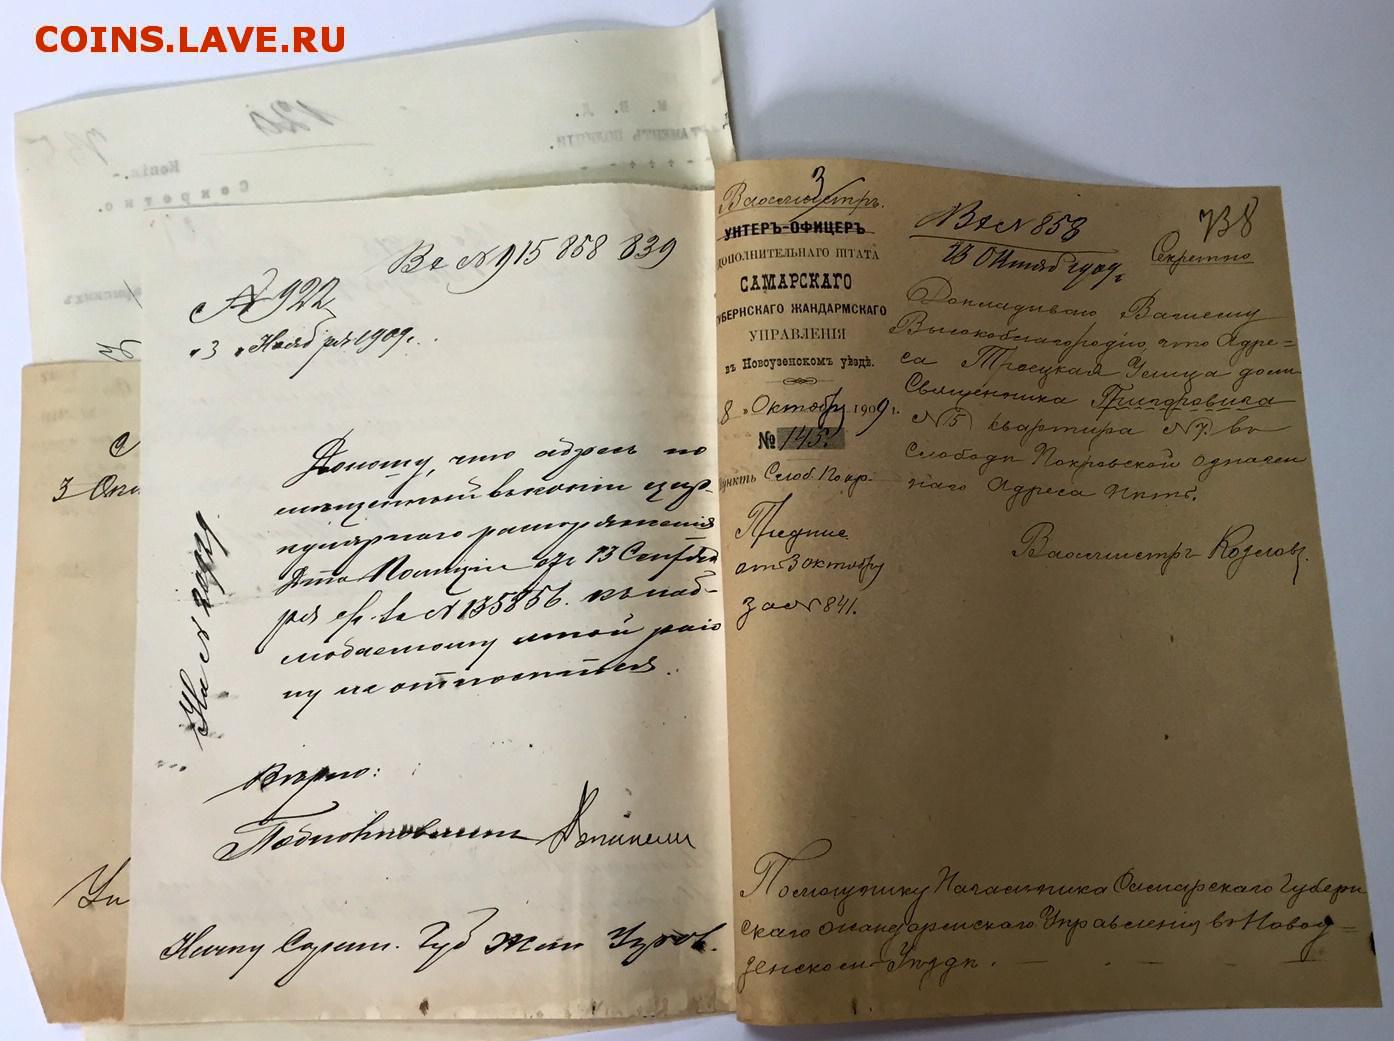 COINS.LAVE.RU
М. В. Д.
ДЕПАРТАМЕНТЪ ПОЛИЦІИ.
120
Копія.
Секретно.
3 Ок
Вх № 915 858 839
№ 922
"3" Ноября 1909 г.
На № 2099
Доношу, что адресъ по
цир-
кулярнаго распоряженія
Д-та Полиціи отъ 13 Сентяб-
ря с/г. за № 135856. къ наб-
людаемому мной райо
ну не относится.
Вѣрно:
Подполковникъ
Нач-ку Самар. Губ. Жан. Управ.
3
Вахмистръ.
УНТЕРЪ-ОФИЦЕРЪ
ДОПОЛНИТЕЛЬНАГО ШТАТА
САМАРСКАГО
ГУБЕРНСКАГО ЖАНДАРМСКАГО
УПРАВЛЕНІЯ
въ Новоузенскомъ уѣздѣ.
8 " Октября 1909 г.
№ 145.
Пунктъ Слоб. Покр.
Предпис.
от 3 октября
за № 841.
Вх № 858
13 Октяб 1909 г.
738
Секретно
Докладываю Вашему
Высокоблагородію, что Адре=
са Троецкая Улица домъ
Священника Григоровича
№ 5 квартира № 7. въ
Слободѣ Покровской означен
наго Адреса нѣтъ.
Вахмистръ Козловъ.
Помощнику Начальника Самарскаго Губерн
скаго Жандармскаго Управленія въ Новоу=
зенскомъ Уѣздѣ.